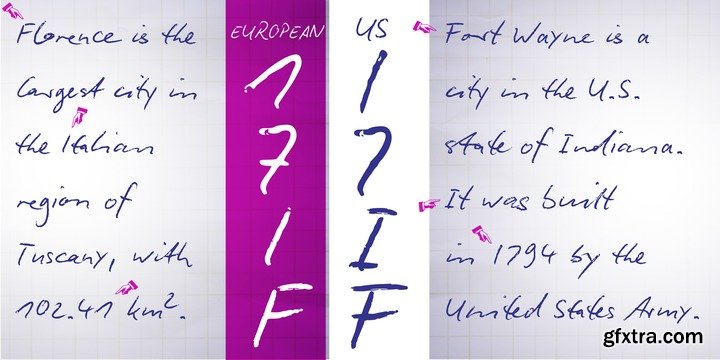 Florence is the
largest city in
the Italian
region of
Tuscany, with
102.41 km².
EUROPEAN
1
7
I
F
US
1
7
I
F
Fort Wayne is a
city in the U.S.
state of Indiana.
It was built
in 1794 by the
United States Army.
gfxtra.com